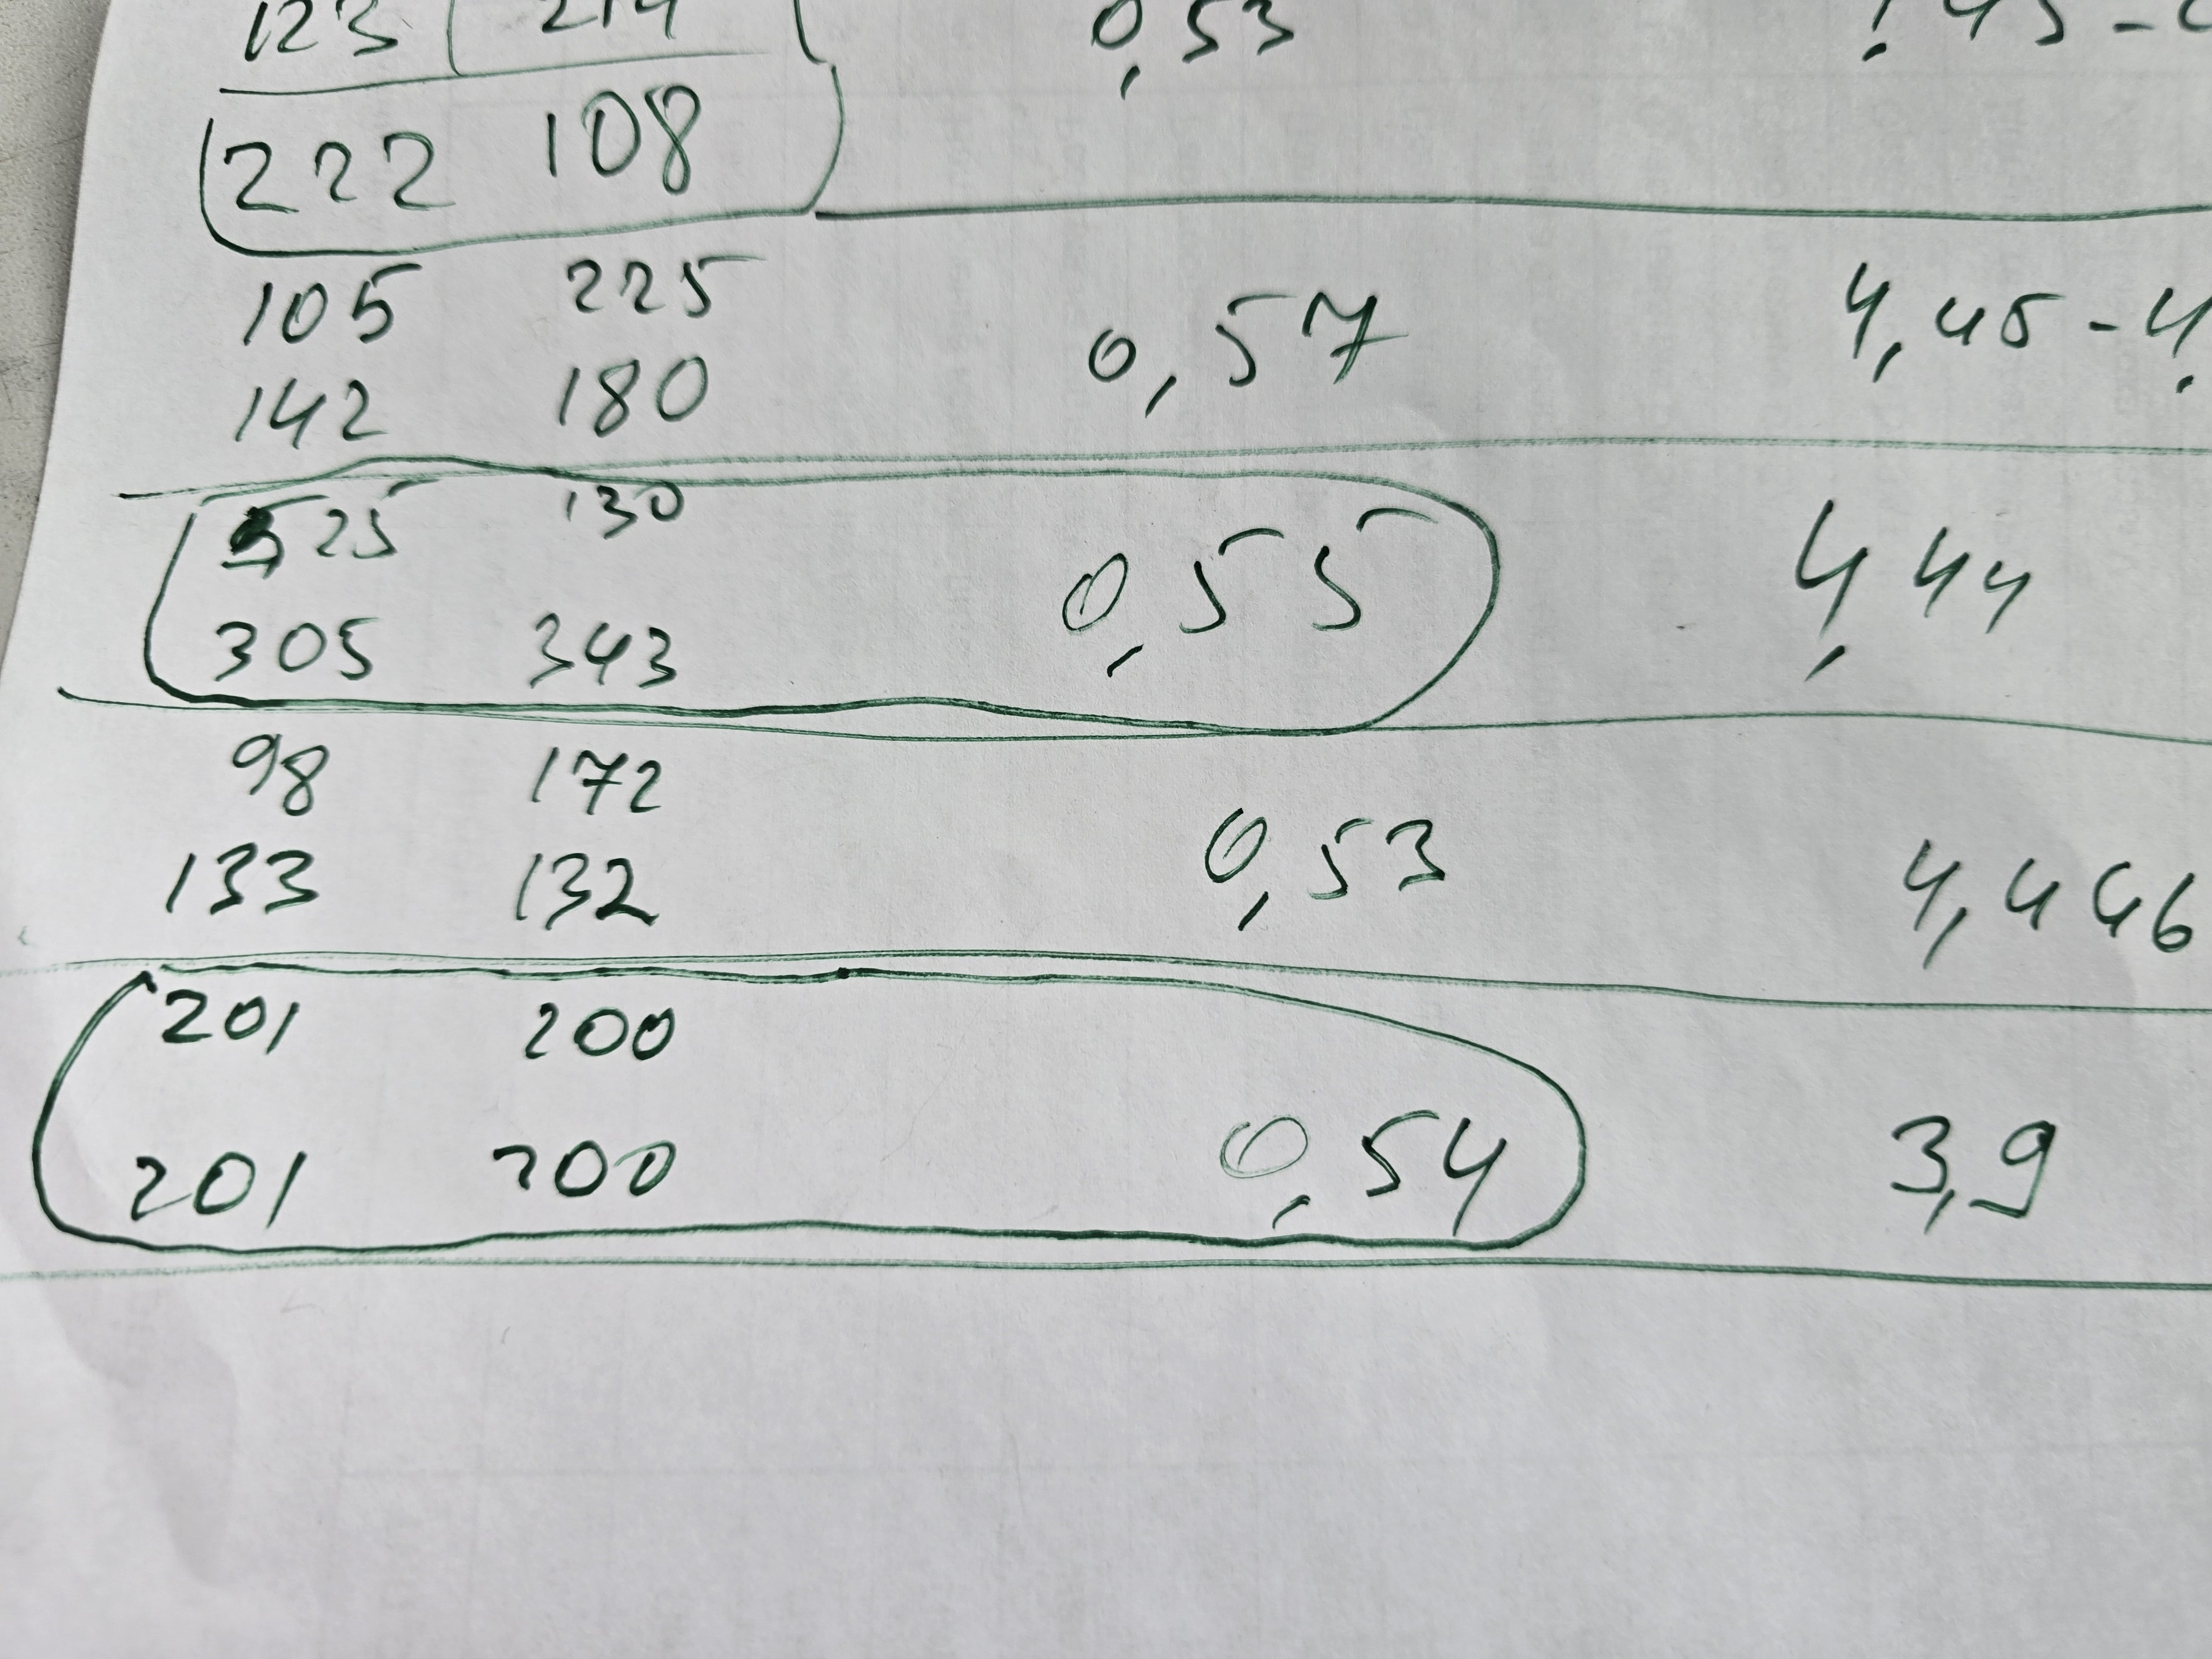 123 214 0,53
222 108
105 225
0,57 4,45-4,
142 180
525 130
0,55 4,44
305 343
98 172
0,53 4,446
133 132
201 200
201 200 0,54 3,9